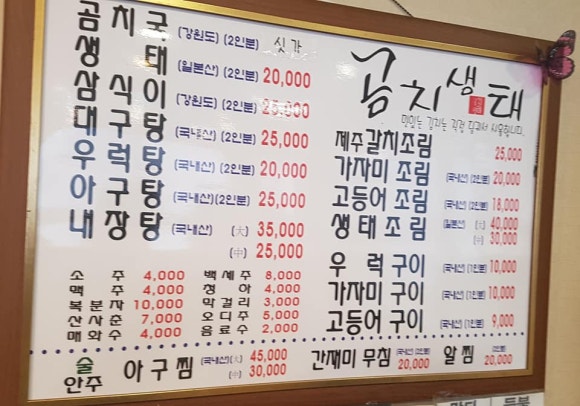 곰치국 (강원도) (2인분) 싯가
생태 (일본산) (2인분) 20,000
삼식이 (강원도) (2인분) 25,000
대구탕 (국내산) (2인분) 25,000
우럭탕 (국내산) (2인분) 20,000
아구탕 (국내산) (2인분) 25,000
내장탕 (국내산) (大) 35,000
(中) 25,000
소주 4,000 백세주 8,000
맥주 4,000 청하 4,000
복분자 10,000 막걸리 3,000
산사춘 7,000 오디주 5,000
매화수 4,000 음료수 2,000
곰치 생태
맛있는 김치는 직접 담궈서 사용합니다.
제주갈치조림 25,000
가자미 조림 (국내산) (2인분) 20,000
고등어 조림 (국내산) (2인분) 18,000
생태 조림 (일본산) (大) 40,000
(中) 30,000
우럭구이 (국내산) (1인분) 10,000
가자미 구이 (국내산) (1인분) 10,000
고등어 구이 (국내산) (1인분) 9,000
술안주 아구찜 (국내산) (大) 45,000
(中) 30,000
간재미 무침 (국내산) (2인분) 20,000
알찜 (2인분) 20,000